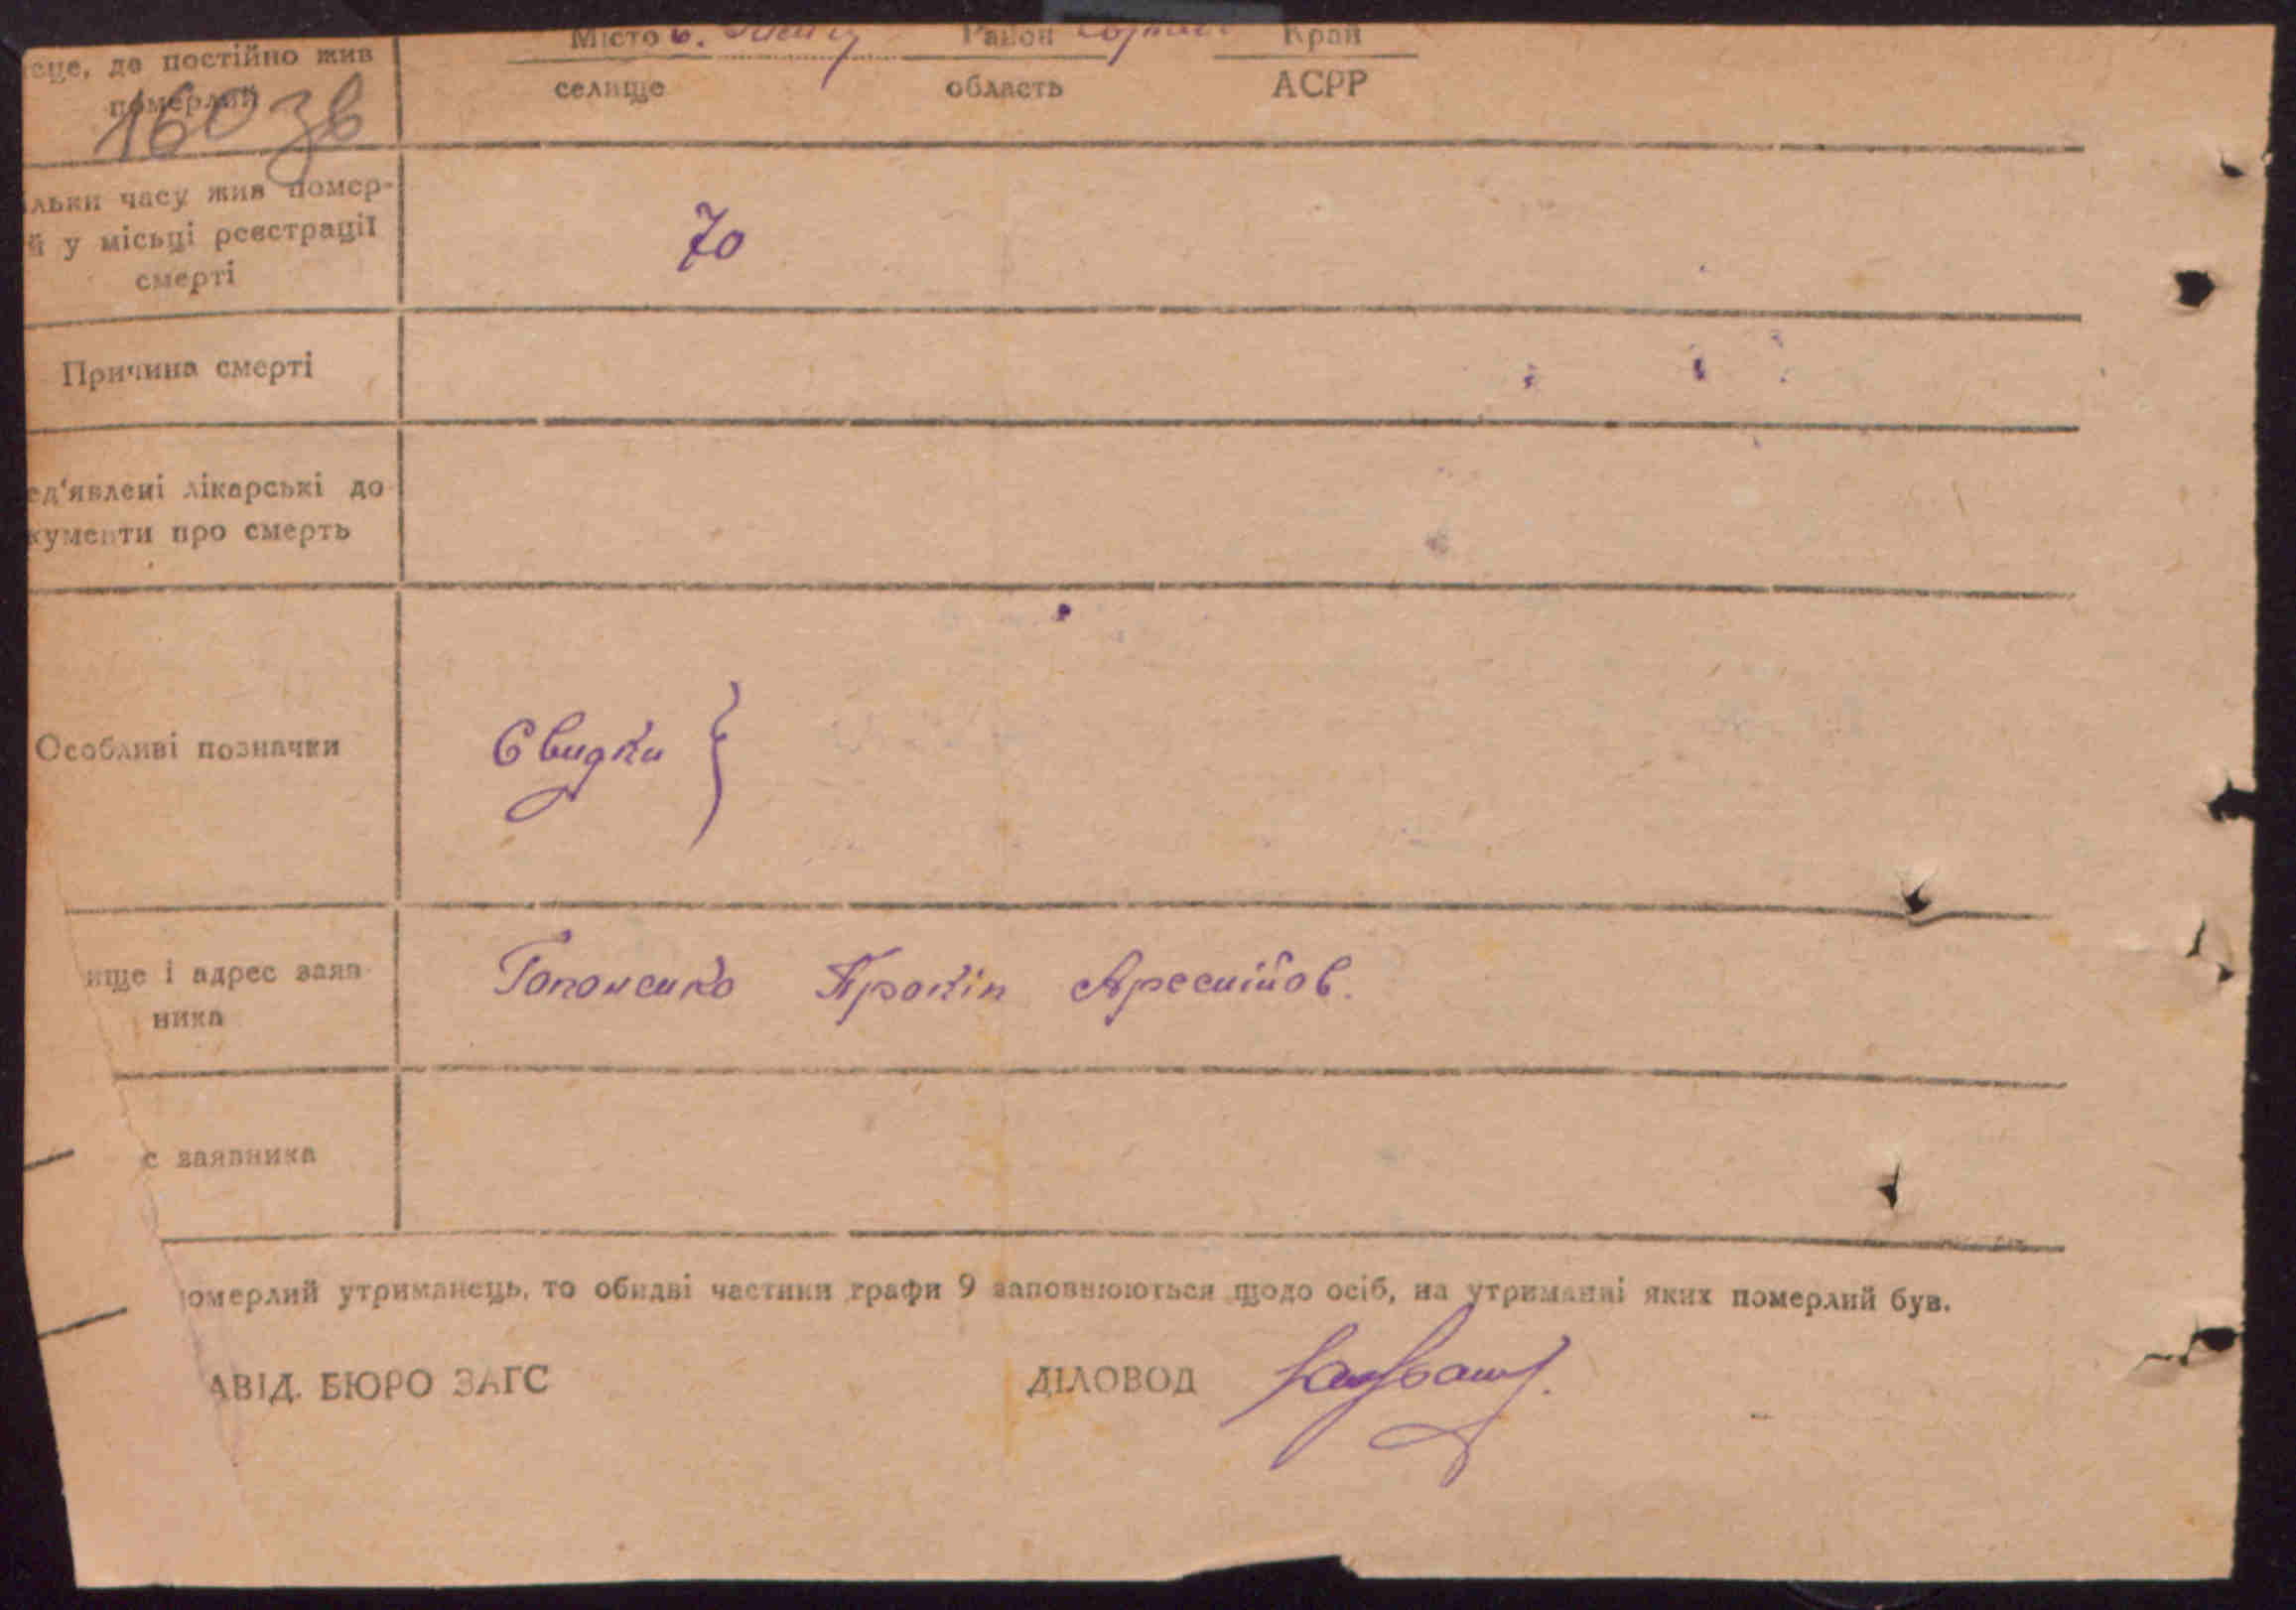 сце, де постійно жив
померлий
Місто Район Край
селище область АСРР
160 зв
льки часу жив помер-
й у місьці реєстрації
смерті
70
Причина смерті
ед'явлені лікарські до
кументи про смерть
Особливі позначки
Свидки }
ище і адрес заяв-
ника
Гапоненко Прокіп
с заявника
омерлий утриманець, то обидві частини графи 9 заповнюються щодо осіб, на утриманні яких померлий був.
АВІД. БЮРО ЗАГС
ДІЛОВОД